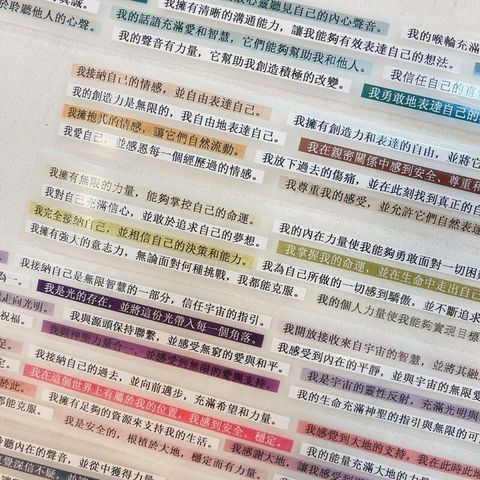 於聆聽他人的心聲。
心靈聽見自己的內心聲音。
我擁有清晰的溝通能力，讓我能夠有效表達自己的想法。
我的話語充滿愛和智慧，它們能夠幫助我和他人。
我的聲音有力量，它幫助我創造積極的改變。
我的喉輪充滿
我信任自己的直
我勇敢地表達自己的
我接納自己的情感，並自由表達自己。
我的創造力是無限的，我自由地表達自己。
我擁抱我的情感，讓它們自然流動。
我愛自己，並感恩每一個經歷過的情感。
我擁有創造力和表達的自由，並將它
我在親密關係中感到安全、尊重和
我放下過去的傷痛，並在此刻找到真正的自
我尊重我的感受，並允許它們自然表達
我擁有無限的力量，能夠掌控自己的命運。
我對自己充滿信心，並敢於追求自己的夢想。
我完全接納自己，並相信自己的決策和能力。
我擁有強大的意志力，無論面對何種挑戰，我都能克服。
我的內在力量使我能夠勇敢面對一切困
我掌握我的命運，並在生命中走出自己
我為自己所做的一切感到驕傲，並不斷追求
我的個人力量使我能夠實現目標
我接納自己是無限智慧的一部分，信任宇宙的指引。
我是光的存在，並將這份光帶入每一個角落。
我與源頭保持聯繫，並感受無窮的愛與和平。
我與神聖力量合一，並感受到無限的愛與支持。
走向光明。
祝福。
我開放接收來自宇宙的智慧，並將其融
我感受到內在的平靜，並與宇宙的無限愛
我是宇宙的靈性反射，充滿光明與
我的生命充滿神聖的指引與無限的可
我接納自己的過去，並向前邁步，充滿希望和力量。
我在這個世界上有屬於我的位置，我感到安全、穩定。
我擁有足夠的資源來支持我的生活。
我是安全的，根植於大地，穩定而有力量。
都能克服。
我感覺到大地的支持，我在此時此地
我感謝大地，
我的能量充滿大地的力量
聽內在的聲音，並從中獲得力量
覺深信不疑，並
讓我感受到